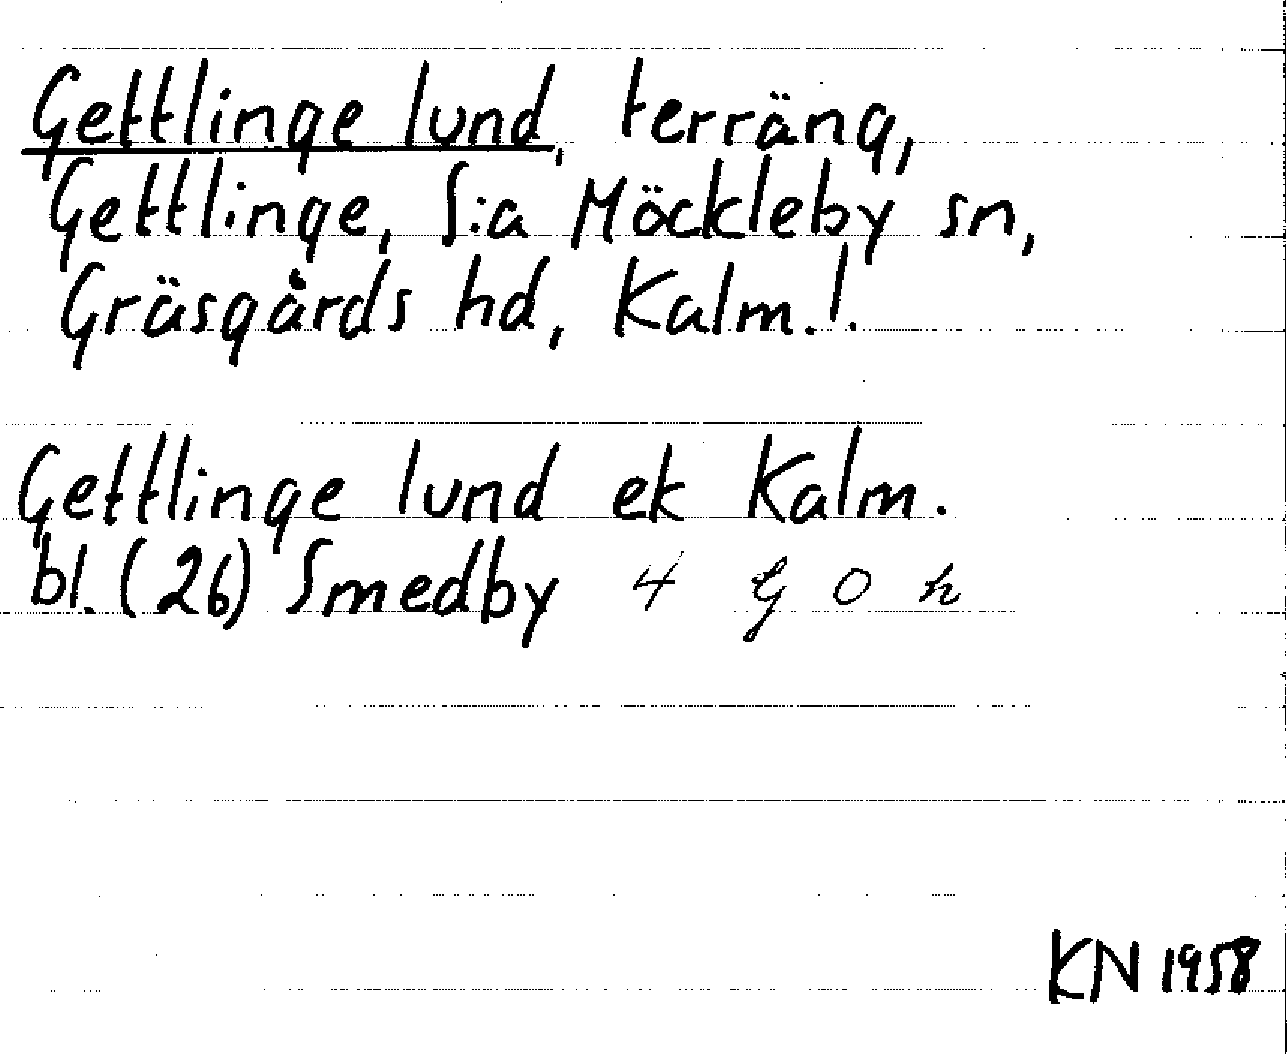 Gettlinge lund, terräng,
Gettlinge, S:a Möckleby sn,
Gräsgårds hd, Kalm. l.
Gettlinge lund ek Kalm.
bl. (26) Smedby 4 G O h
KN 1958